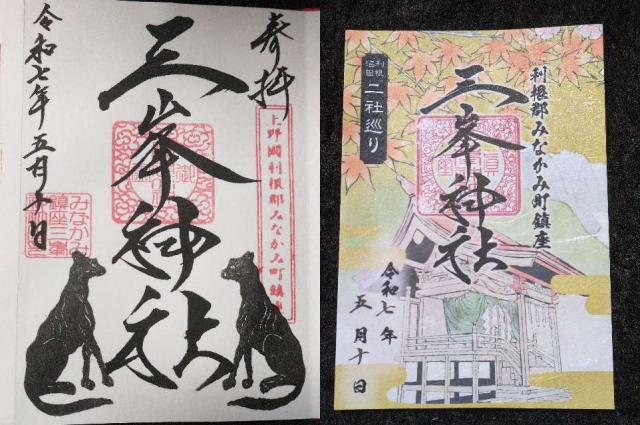 奉拝
上野國利根郡みなかみ町鎮座
三峯神社
令和七年五月十日
みなかみ
鎮座三峯
利根郡みなかみ町鎮座
三峯神社
利根
沼田
二社巡り
令和七年
五月十日